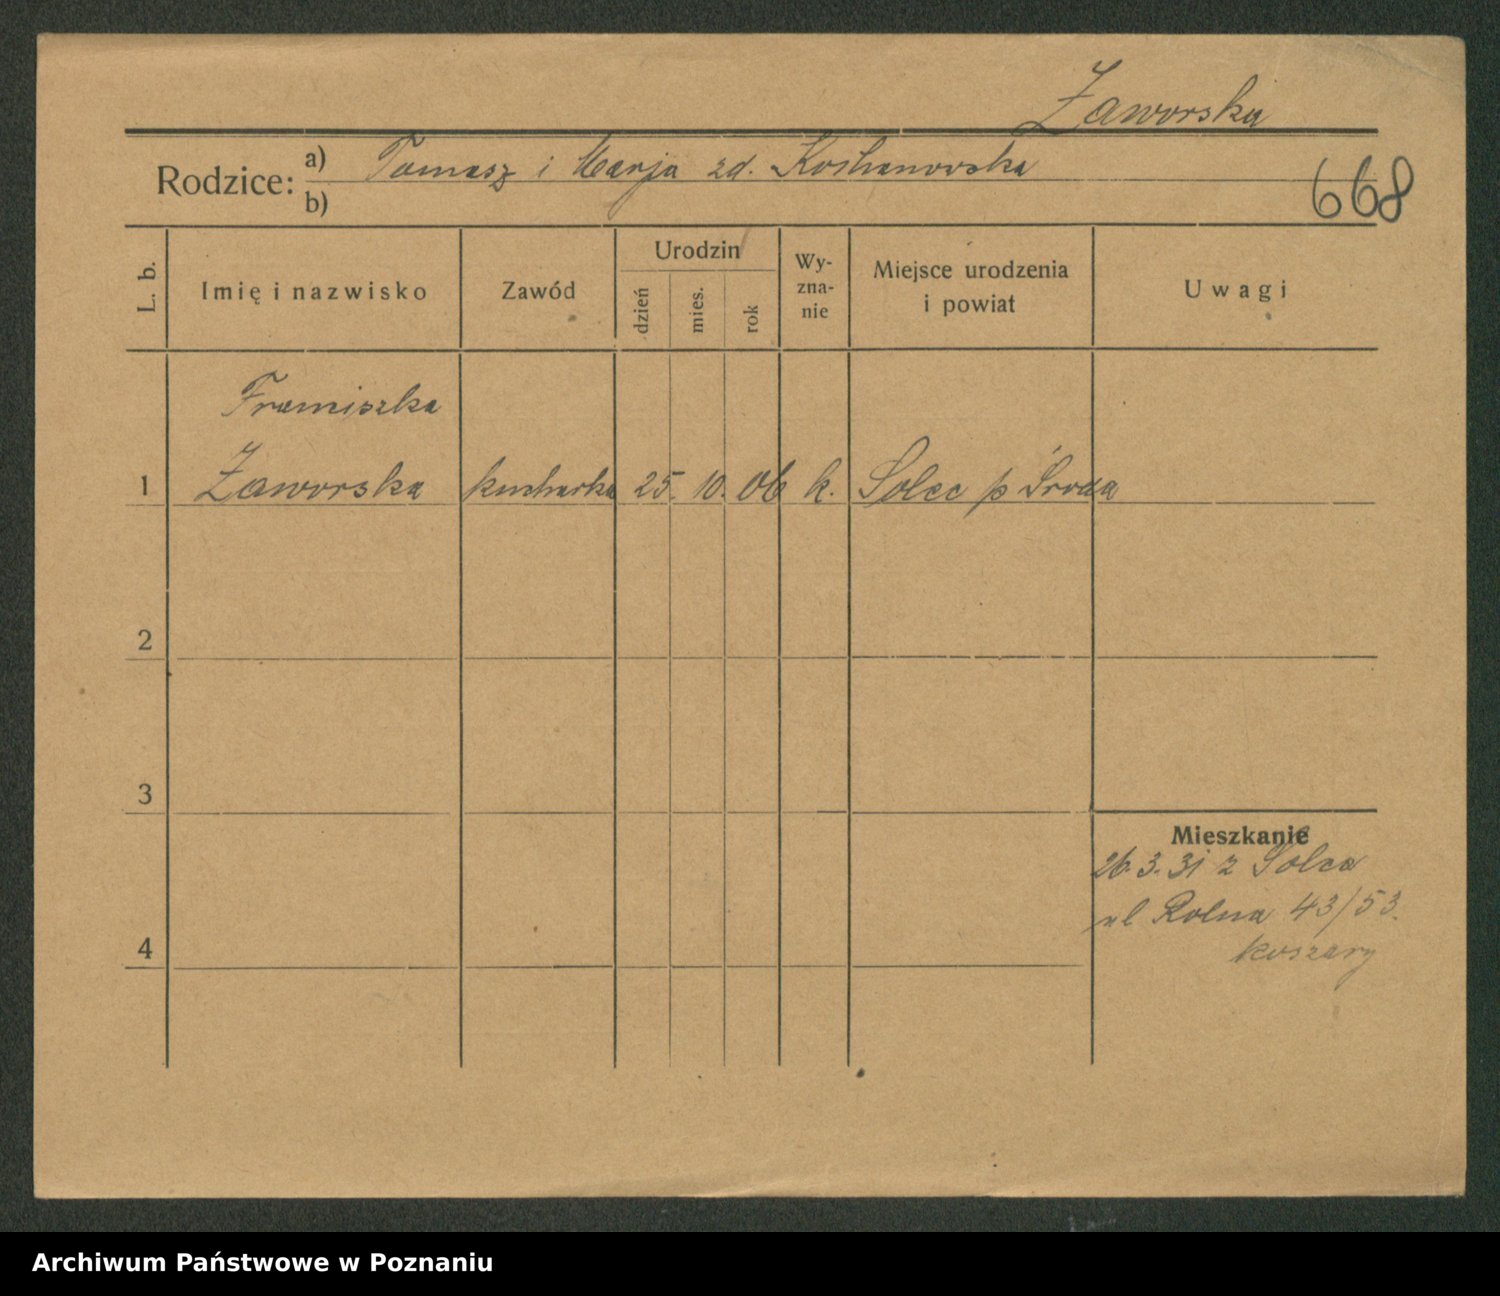 Zaworska
Rodzice: a) Tomasz i Marja zd.
b)
668
L. b.
Imię i nazwisko
Zawód
Urodzin
dzień
mies.
rok
Wy-
zna-
nie
Miejsce urodzenia
i powiat
Uwagi
Franciszka
1 Zaworska kucharka 25. 10. 06 k. Solec p Środa
2
3
Mieszkanie
26.3.31 z Solca
ul Rolna 43/53.
koszary
4
Archiwum Państwowe w Poznaniu